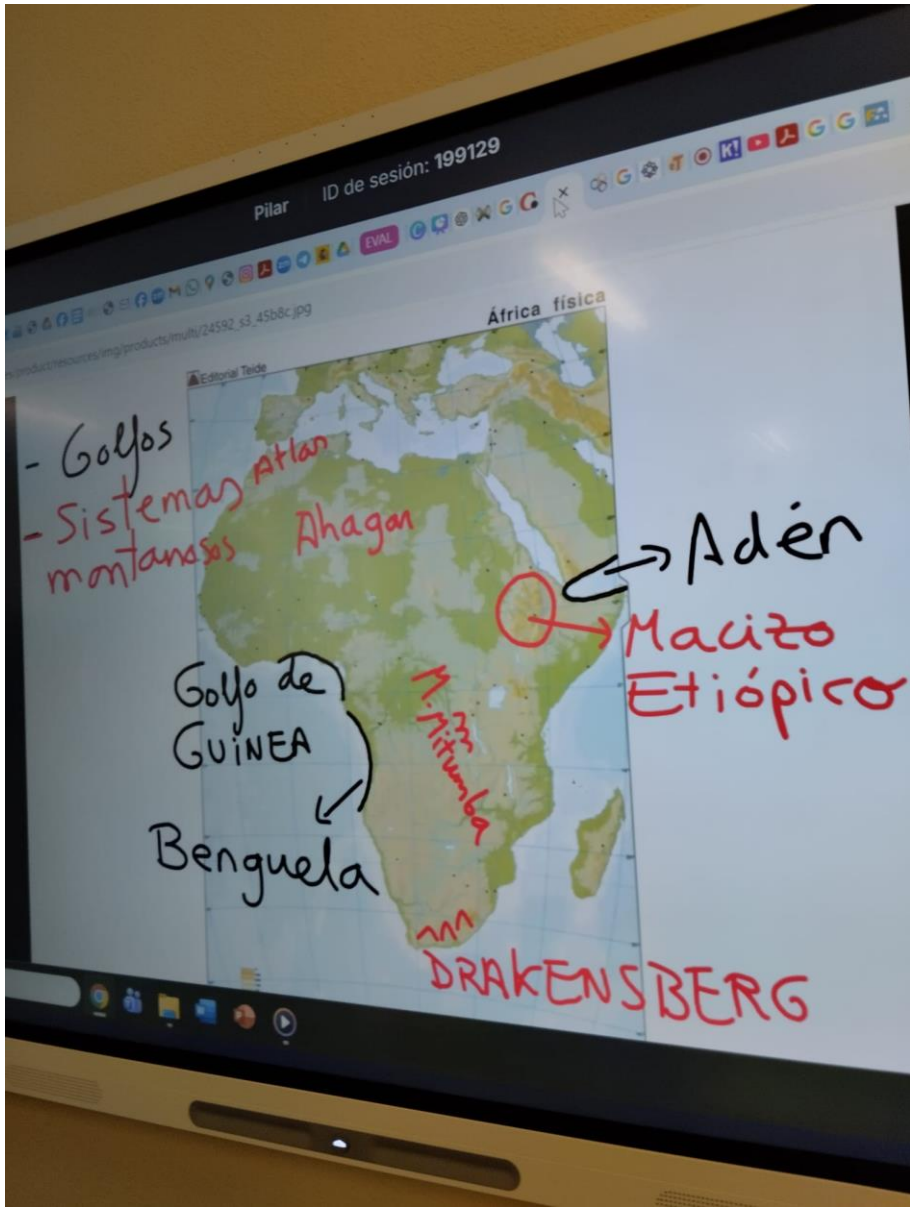 Pilar ID de sesión: 199129
EVAL
product/resources/img/products/multi/24592_s3_45b8c.jpg
África física
Editorial Teide
- Golfos
- Sistemas
montañasos
Atlas
Ahagar
Adén
Macizo
Etiópico
Golfo de
GUINEA
M. Mitumba
Benguela
DRAKENSBERG